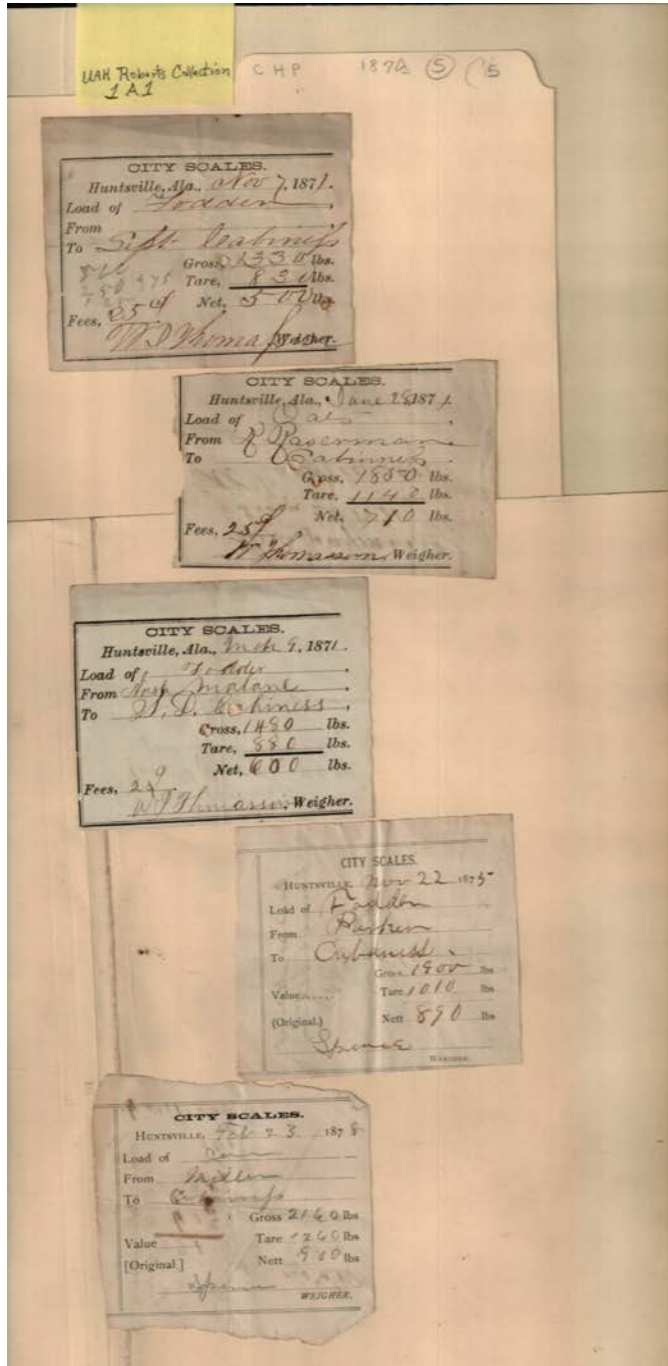 UAH Roberts Collection
1 A 1
CHP 187 5 5
CITY SCALES.
Huntsville, Ala., Nov 7, 1871.
Load of Fodder
From
To Sept. Cabiniss
Gross, 1330 lbs.
Tare, 830 lbs.
Net, 500 lbs.
Fees, 25¢
W D Thomasson Weigher.
CITY SCALES.
Huntsville, Ala., June 28, 1871.
Load of Oats
From R
To Cabinness
Gross, 1850 lbs.
Tare, 1140 lbs.
Net, 710 lbs.
Fees, 25¢
Thomasson, Weigher.
CITY SCALES.
Huntsville, Ala., Mch 9, 1871.
Load of, Fodder
From Malone
To Cabiness
Gross, 1480 lbs.
Tare, 880 lbs.
Net, 600 lbs.
Fees, 25
Thomasson, Weigher.
CITY SCALES.
HUNTSVILLE, Nov 22 1875
Load of Fodder
From Parker
To Cabaniss
Gross 1900 lbs
Value Tare 1010 lbs
(Original.) Nett 890 lbs
Spence
WEIGHER.
CITY SCALES.
HUNTSVILLE, Feb 23 1878
Load of Corn
From Miller
To Cabiniss
Gross 2160 lbs
Value Tare 1260 lbs
[Original.] Nett 900 lbs
Spence
WEIGHER.